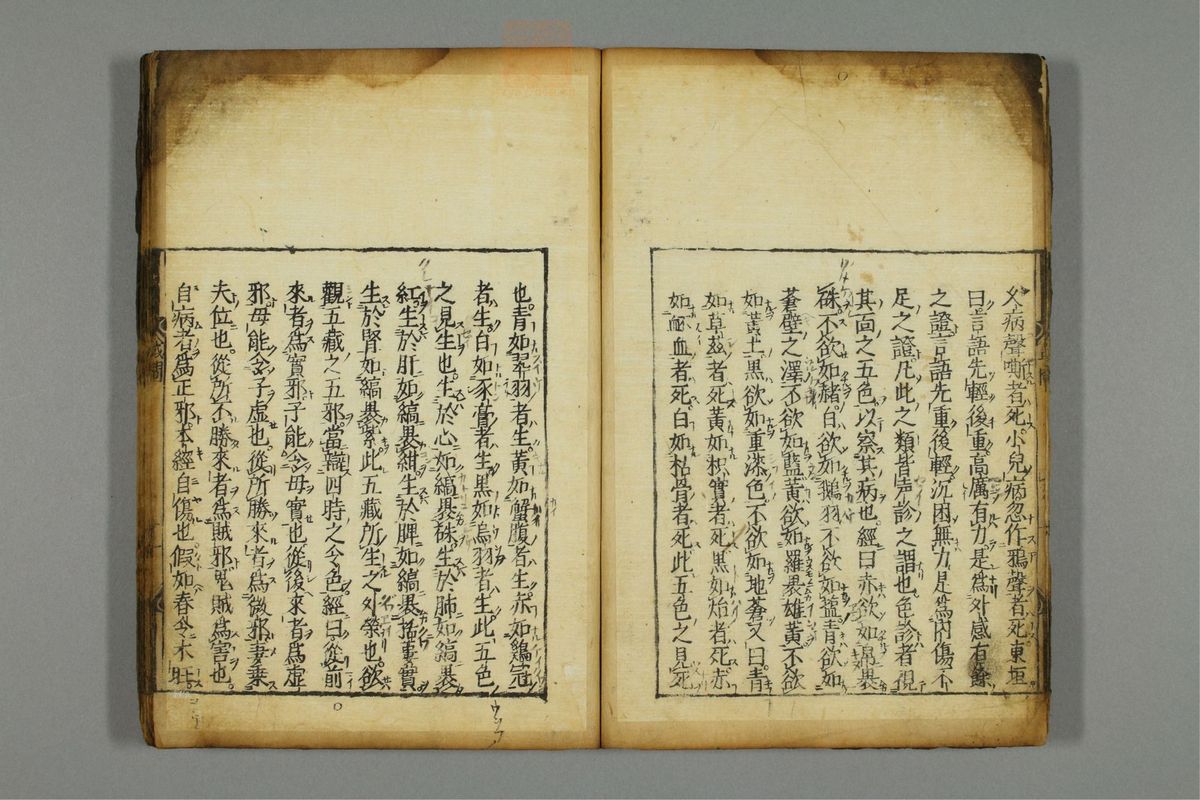 久病聲嘶者死小兒病忽作鴉聲者死東垣
曰言語先輕後重高厲有力是爲外感有餘
之證言語先重後輕沉困無力是爲内傷不
足之證凡此之類皆声診之謂也色診者視
其面之五色以察其病也經曰赤欲如帛裹
硃不欲如赭白欲如鵝羽不欲如塩青欲如
蒼壁之澤不欲如藍黃欲如羅裹雄黃不欲
如黃土黑欲如重漆色不欲如地蒼又曰青
如草茲者死黃如枳實者死黑如炲者死赤
如衃血者死白如枯骨者死此五色之見死
也青如翠羽者生黃如蟹腹者生赤如鷄冠
者生白如豕膏者生黑如烏羽者生此五色
之見生也生於心如縞裹硃生於肺如縞裹
紅生於肝如縞裹紺生於脾如縞裹括蔞實
生於腎如縞裹紫此五藏所生之外榮也欲
觀五藏之五邪當辯四時之令色經曰從前
來者爲實邪子能令母實也從後來者爲虚
邪母能令子虚也從所勝來者爲微邪妻乗
夫位也從所不勝來者爲賊邪鬼賊爲害也
自病者爲正邪本經自傷也假如春令木旺